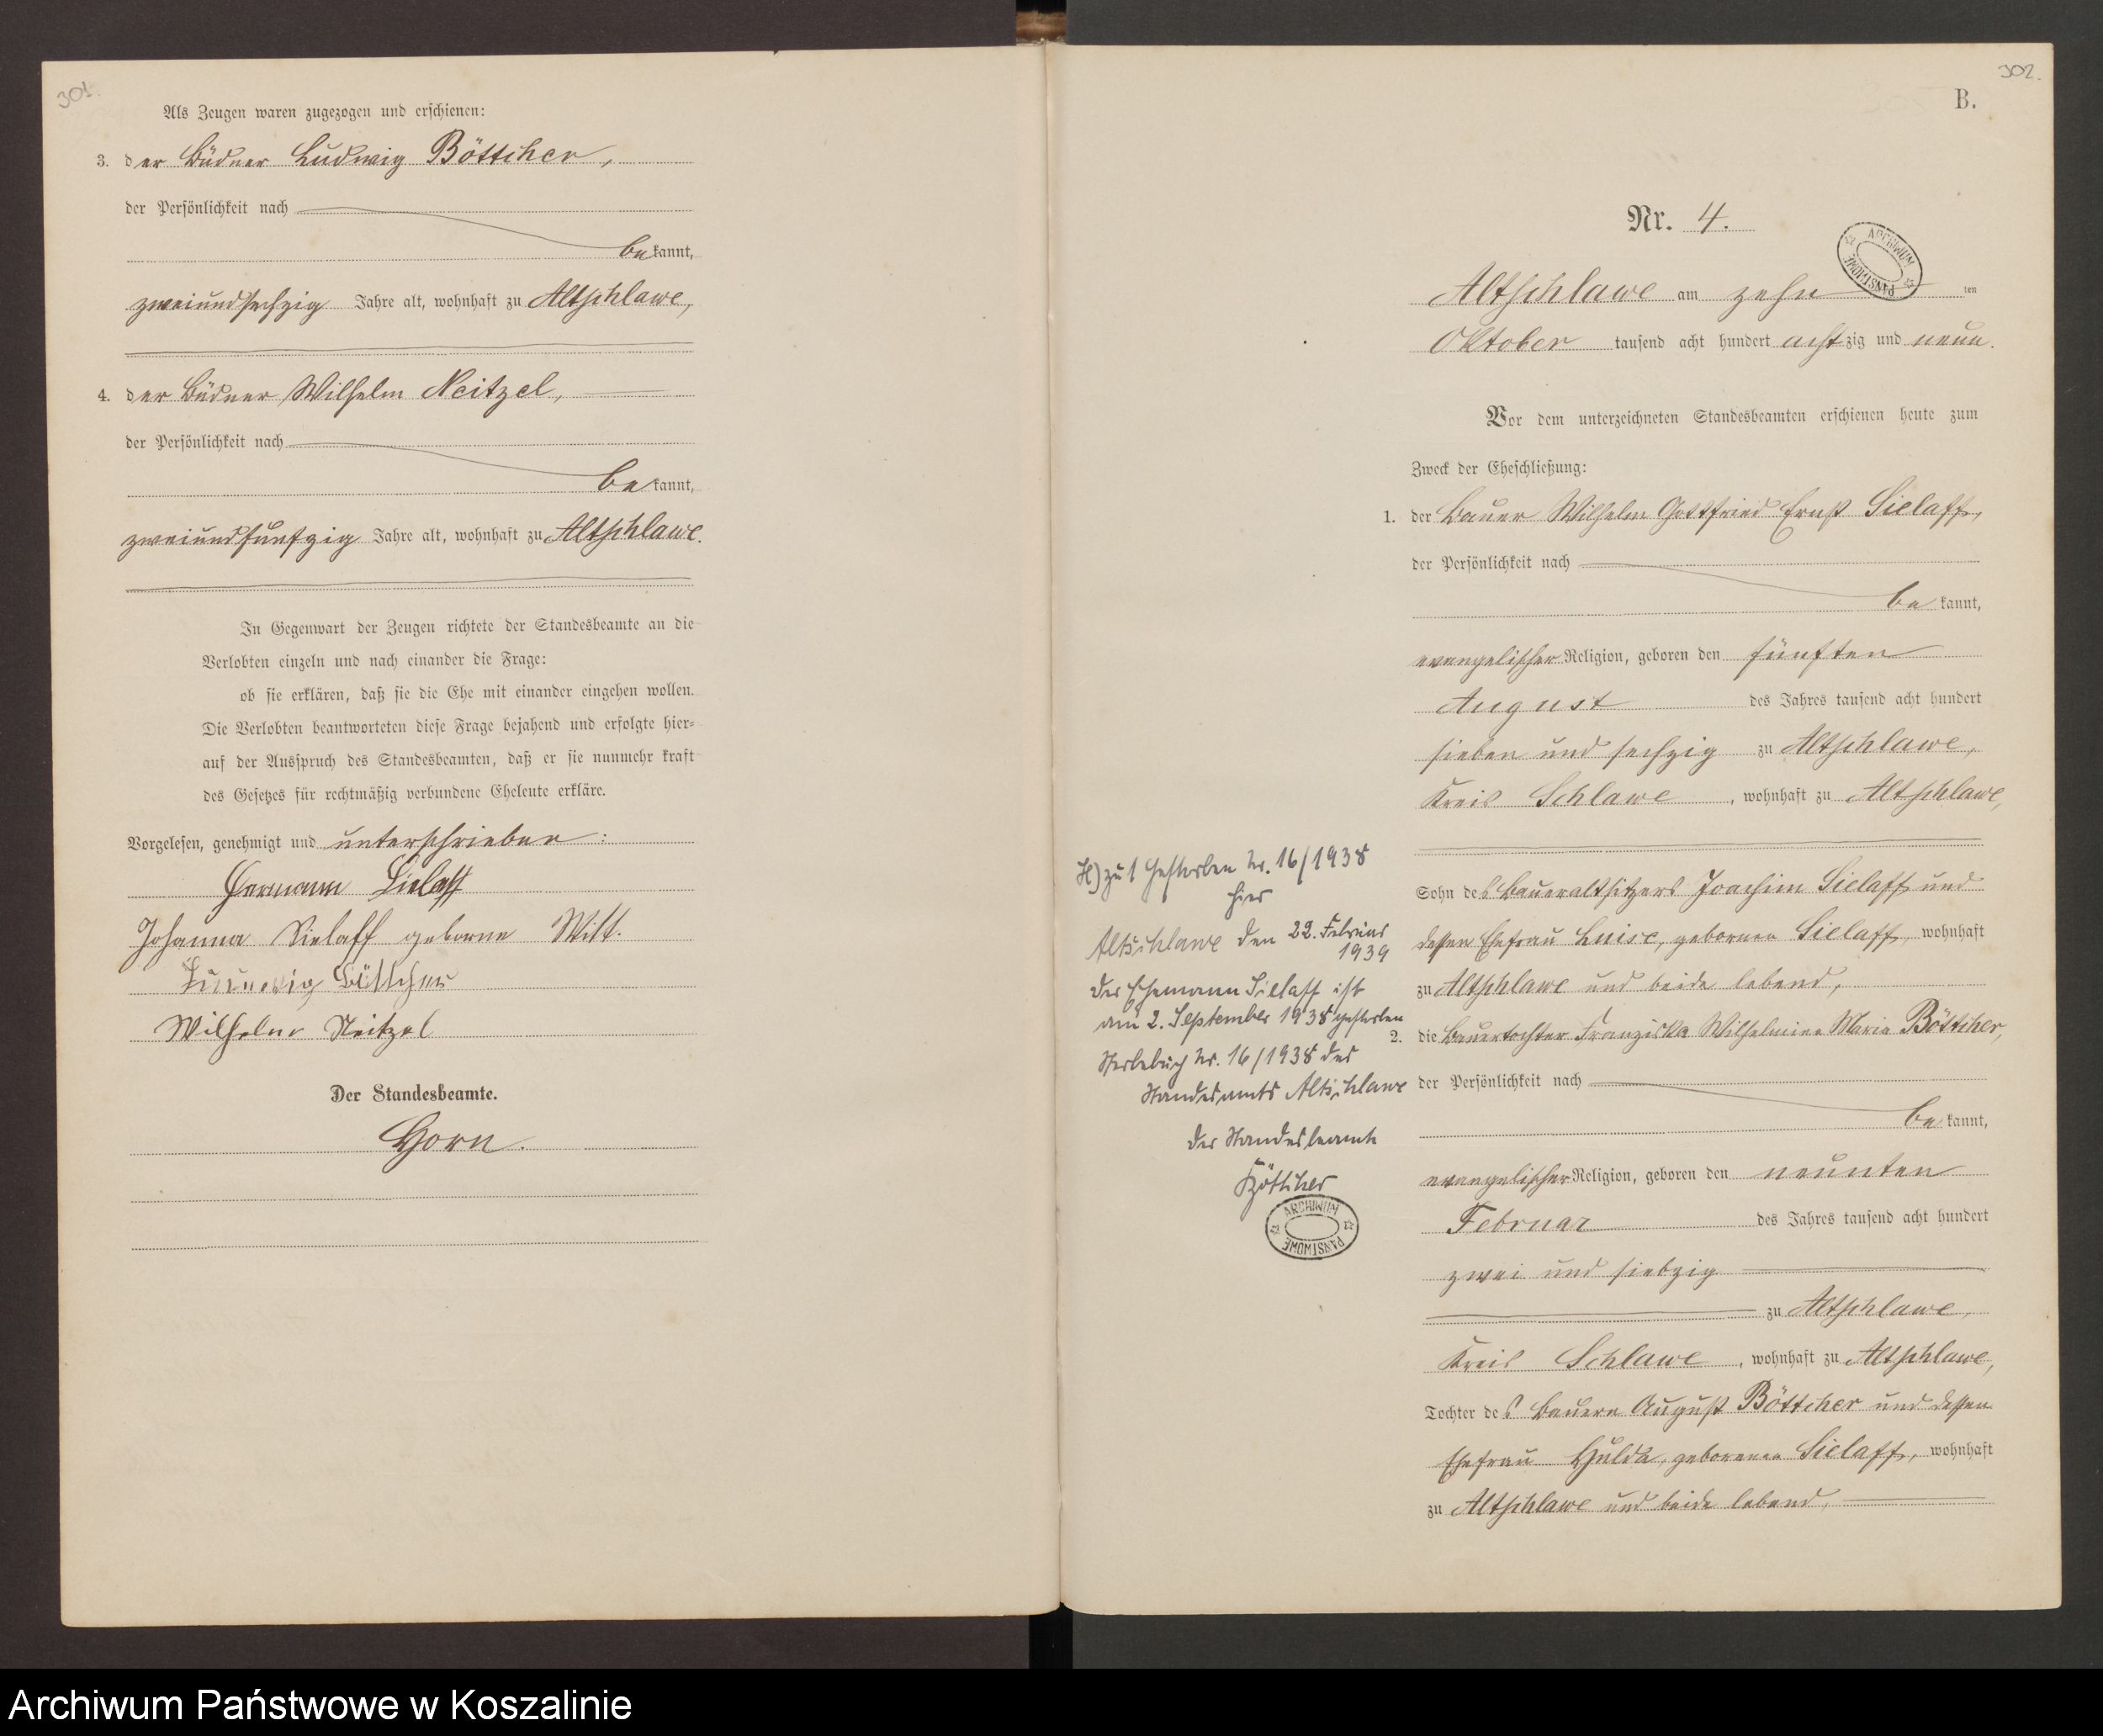 301.
Als Zeugen waren zugezogen und erschienen:
3. der Büdner Ludwig Böttcher,
der Persönlichkeit nach
bekannt,
zweiundsechzig Jahre alt, wohnhaft zu Altschlawe,
4. der Büdner Wilhelm Neitzel,
der Persönlichkeit nach
bekannt,
zweiundfünfzig Jahre alt, wohnhaft zu Altschlawe.
In Gegenwart der Zeugen richtete der Standesbeamte an die
Verlobten einzeln und nach einander die Frage:
ob sie erklären, daß sie die Ehe mit einander eingehen wollen.
Die Verlobten beantworteten diese Frage bejahend und erfolgte hier-
auf der Ausspruch des Standesbeamten, daß er sie nunmehr kraft
des Gesetzes für rechtmäßig verbundene Eheleute erkläre.
Vorgelesen, genehmigt und unterschrieben:
Hermann Sielaff
Johanna Sielaff geborne Witt.
Ludwig Böttcher
Wilhelm Neitzel
Der Standesbeamte.
Horn.
302.
B.
Nr. 4.
ARCHIWUM PAŃSTWOWE
Altschlawe am zehn ten
Oktober tausend acht hundert achtzig und neun.
Vor dem unterzeichneten Standesbeamten erschienen heute zum
Zweck der Eheschließung:
1. der Bauer Wilhelm Gottfried Ernst Sielaff,
der Persönlichkeit nach
bekannt,
evangelischer Religion, geboren den fünften
August des Jahres tausend acht hundert
sieben und sechzig zu Altschlawe,
Kreis Schlawe, wohnhaft zu Altschlawe,
Sohn des Baueraltsitzers Joachim Sielaff und
dessen Ehefrau Luise, geborenen Sielaff, wohnhaft
zu Altschlawe und beide lebend,
2. die Bauertochter Franziska Wilhelmine Marie Böttcher,
der Persönlichkeit nach
bekannt,
evangelischer Religion, geboren den neunten
Februar des Jahres tausend acht hundert
zwei und siebzig
zu Altschlawe,
Kreis Schlawe, wohnhaft zu Altschlawe,
Tochter des Bauern August Böttcher und dessen
Ehefrau Hulda, geborenen Sielaff, wohnhaft
zu Altschlawe und beide lebend,
H) zu 1 gestorben Nr. 16/1938
hier
Altschlawe den 22. Februar
1939
Der Ehemann Sielaff ist
am 2. September 1938 gestorben
Sterbebuch Nr. 16/1938 des
Standesamts Altschlawe
Der Standesbeamte
Böttcher
ARCHIWUM PAŃSTWOWE
Archiwum Państwowe w Koszalinie